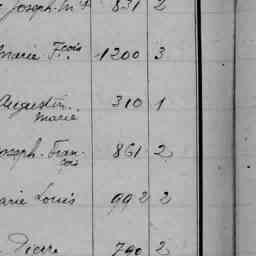 Joseph-M 831 2
Marie Fcois 1200 3
Augustin 310 1
Marie
Joseph-Fran- 861 2
çois
Marie Louis 992 2
Pierre 790 2